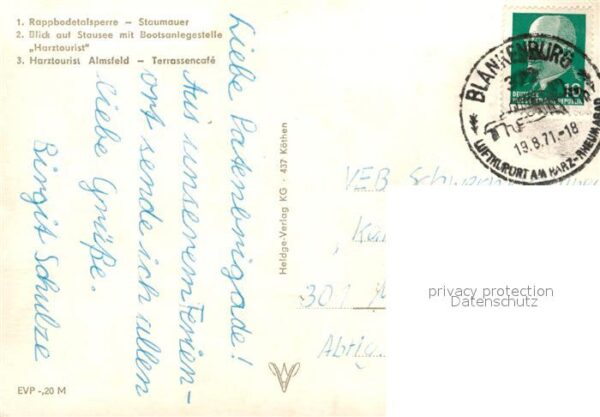 1. Rappbodetalsperre – Staumauer
2. Blick auf Stausee mit Bootsanlegestelle
„Harztourist"
3. Harztourist Almsfeld – Terrassencafé
Liebe Patenbrigade!
Aus unserem Ferien-
ort sende ich allen
liebe Grüße.
Birgit Schulze
Heldge-Verlag KG · 437 Köthen
EVP -,20 M
10
DEUTSCHE
BLANKENBURG
372
19.8.71.-18
LUFTKURORT AM HARZ-RHEUMABAD
VEB
301
privacy protection
Datenschutz